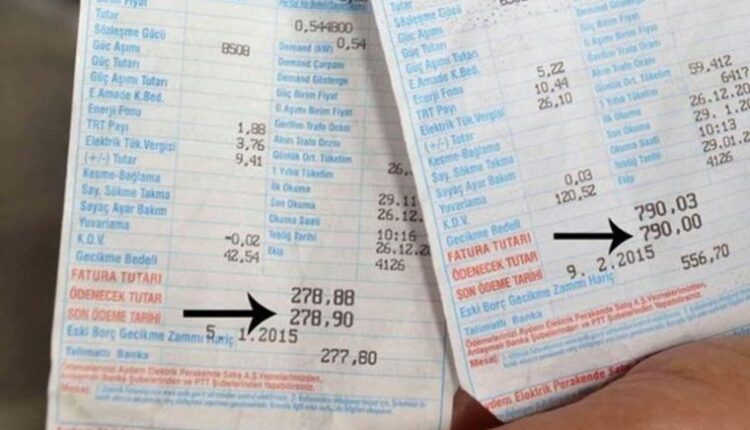 Tutar
Sözleşme Gücü 0,544800
Güç Aşımı 8508 Demand (kW) 0,54
Güç Tutarı Demand Çarpanı
Güç Aşımı Tutarı Demand Gösterge
E.Amade K.Bed. Güç Birim Fiyat
Enerji Fonu G.Aşımı Birim Fiyat
TRT Payı 1,88 Gerilim Trafo Oranı
Elektrik Tük.Vergisi 3,76 Akım Trafo Oranı
(+/-) Tutar 9,41 Günlük Ort. Tüketim
Kesme-Bağlama 1 Yıllık Tüketim
Say. Sökme Takma İlk Okuma
Sayaç Ayar Bakım Son Okuma 29.11
Yuvarlama Okuma Saati 26.12.
K.D.V. -0,02 Tebliğ Tarihi 10:16
Gecikme Bedeli 42,54 Ekip 26.12.20
4126
FATURA TUTARI
ÖDENECEK TUTAR 278,88
SON ÖDEME TARİHİ 278,90
Eski Borç Gecikme Zammı Hariç
5. 1.2015
Talimatlı Banka 277,80
Ödemelerinizi Aydem Elektrik Perakende Satış A.Ş Veznelerimizden,
Anlaşmalı Banka Şubelerinden ve PTT Şubelerinden Yapabilirsiniz.
Mesaj:
Tutar
Sözleşme Gücü
Güç Aşımı
Güç Tutarı
Güç Aşımı Tutarı
E.Amade K.Bed. 5,22
Enerji Fonu 10,44
TRT Payı 26,10
Elektrik Tük.Vergisi
(+/-) Tutar
Kesme-Bağlama
Say. Sökme Takma
Sayaç Ayar Bakım 0,03
Yuvarlama 120,52
K.D.V.
Gecikme Bedeli
Demand Gösterge
Güç Birim Fiyat
G.Aşımı Birim Fiyat
Gerilim Trafo Oranı
Akım Trafo Oranı
Günlük Ort. Tüketim 59,412
1 Yıllık Tüketim 6417
İlk Okuma 26.12.20
Son Okuma 29. 1.20
Okuma Saati 10:13
Tebliğ Tarihi 29.01.20
Ekip 4126
FATURA TUTARI 790,03
ÖDENECEK TUTAR 790,00
SON ÖDEME TARİHİ 9. 2.2015
Eski Borç Gecikme Zammı Hariç 556,70
Talimatlı Banka
Ödemelerinizi Aydem Elektrik Perakende Satış A.Ş Veznelerimizden,
Anlaşmalı Banka Şubelerinden ve PTT Şubelerinden Yapabilirsiniz.
Mesaj: